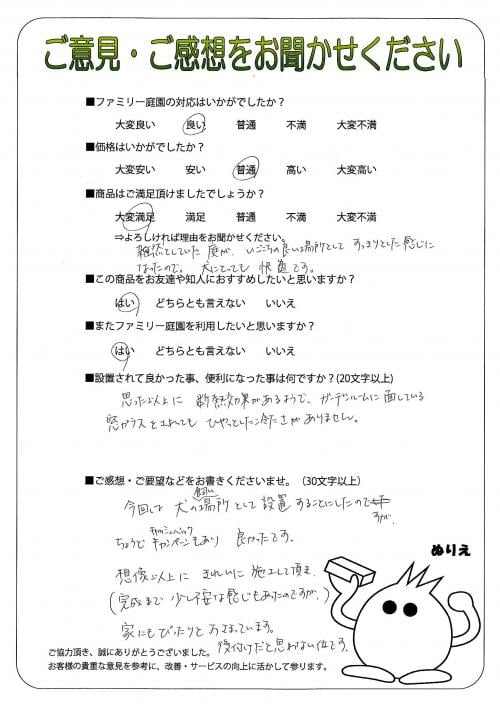 ご意見・ご感想をお聞かせください
■ファミリー庭園の対応はいかがでしたか？
大変良い 良い 普通 不満 大変不満
■価格はいかがでしたか？
大変安い 安い 普通 高い 大変高い
■商品はご満足頂けましたでしょうか？
大変満足 満足 普通 不満 大変不満
⇒よろしければ理由をお聞かせください。
雑然としていた庭が、いごこちの良い場所として すっきりとした感じに
なったので。犬にとっても 快適です。
■この商品をお友達や知人におすすめしたいと思いますか？
はい どちらとも言えない いいえ
■またファミリー庭園を利用したいと思いますか？
はい どちらとも言えない いいえ
■設置されて良かった事、便利になった事は何ですか？(20文字以上)
思った以上に 断熱効果があるようで、ガーデンルームに面している
窓ガラスにふれても ひやっとした冷たさがありません。
■ご感想・ご要望などをお書きくださいませ。（30文字以上）
今回は 犬の飼い場所として設置することにしたのですが、
ちょうど キャッシュバックキャンペーンもあり 良かったです。
想像以上に きれいに 施工して頂き、
(完成まで 少し不安な感じもあったのですが、)
家にもぴったりと おさまっています。
後付けだと思わない位です。
ぬりえ
ご協力頂き、誠にありがとうございました。
お客様の貴重な意見を参考に、改善・サービスの向上に活かして参ります。